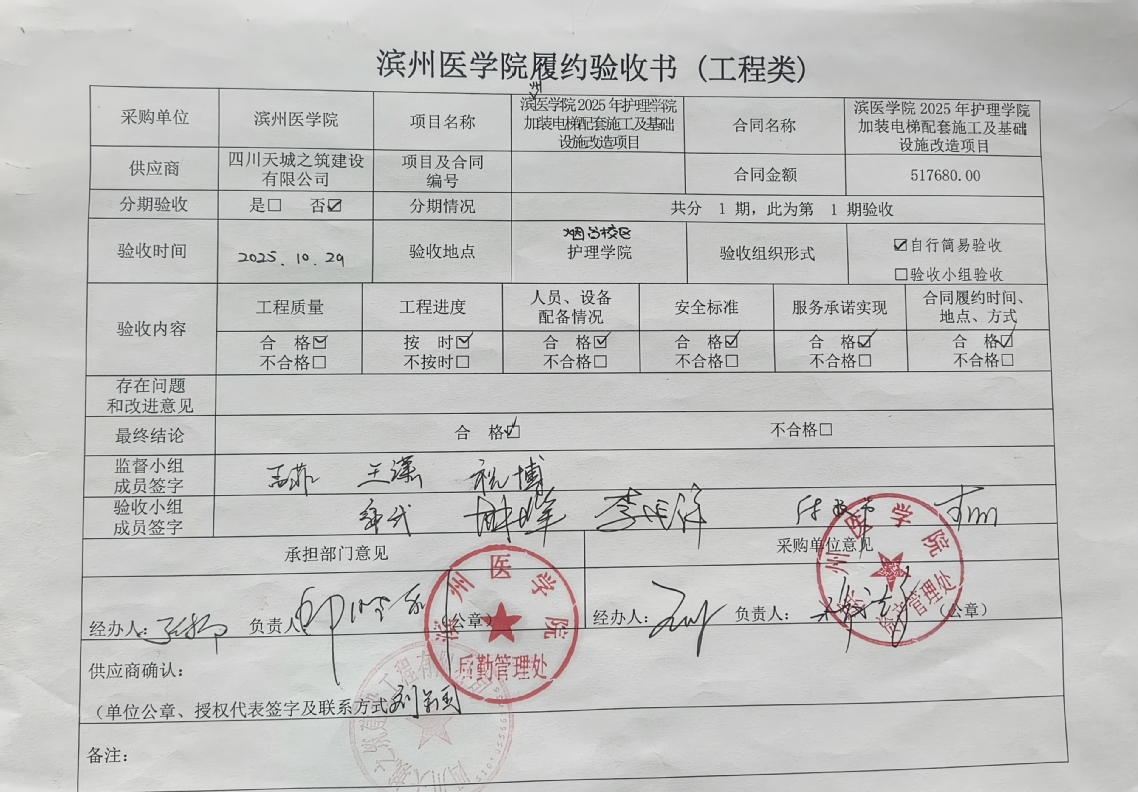 滨州医学院履约验收书 (工程类)
采购单位
滨州医学院
项目名称
州
滨医学院 2025 年护理学院
加装电梯配套施工及基础
设施改造项目
合同名称
滨医学院 2025 年护理学院
加装电梯配套施工及基础
设施改造项目
供应商
四川天城之筑建设
有限公司
项目及合同
编号
合同金额
517680.00
分期验收
是□ 否☑
分期情况
共分 1 期，此为第 1 期验收
验收时间
2025.10.29
验收地点
烟台校区
护理学院
验收组织形式
☑自行简易验收
□验收小组验收
验收内容
工程质量
工程进度
人员、设备
配备情况
安全标准
服务承诺实现
合同履约时间、
地点、方式
合 格☑
按 时☑
合 格☑
合 格☑
合 格☑
合 格☑
不合格□
不按时□
不合格□
不合格□
不合格□
不合格□
存在问题
和改进意见
最终结论
合 格☑
不合格□
监督小组
成员签字
王潇
祝博
验收小组
成员签字
承担部门意见
采购单位意见
经办人：
负责人
（公章）
滨州医学院
后勤管理处
经办人：
负责人：
（公章）
滨州医学院
资产管理处
供应商确认：
（单位公章、授权代表签字及联系方式
备注：